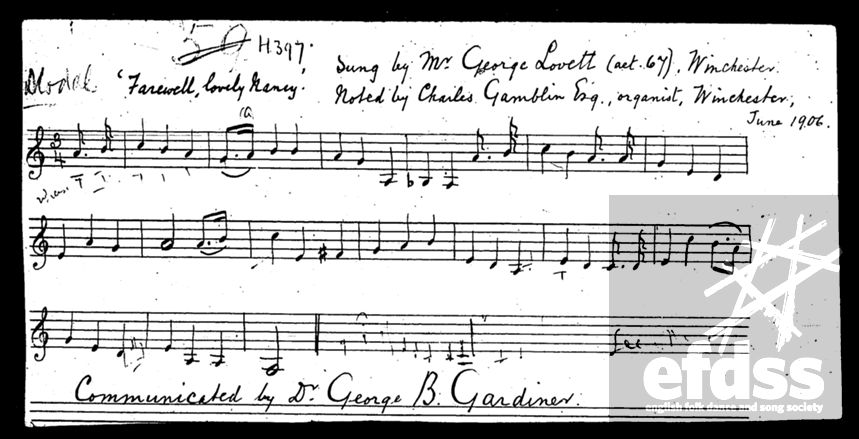 H397.
Sung by Mr George Lovett (aet. 67), Winchester.
Modal 'Farewell, lovely Nancy.'
Noted by Charles Gamblin Esq., organist, Winchester,
June 1906.
Communicated by Dr. George B. Gardiner.
efdss
english folk dance and song society